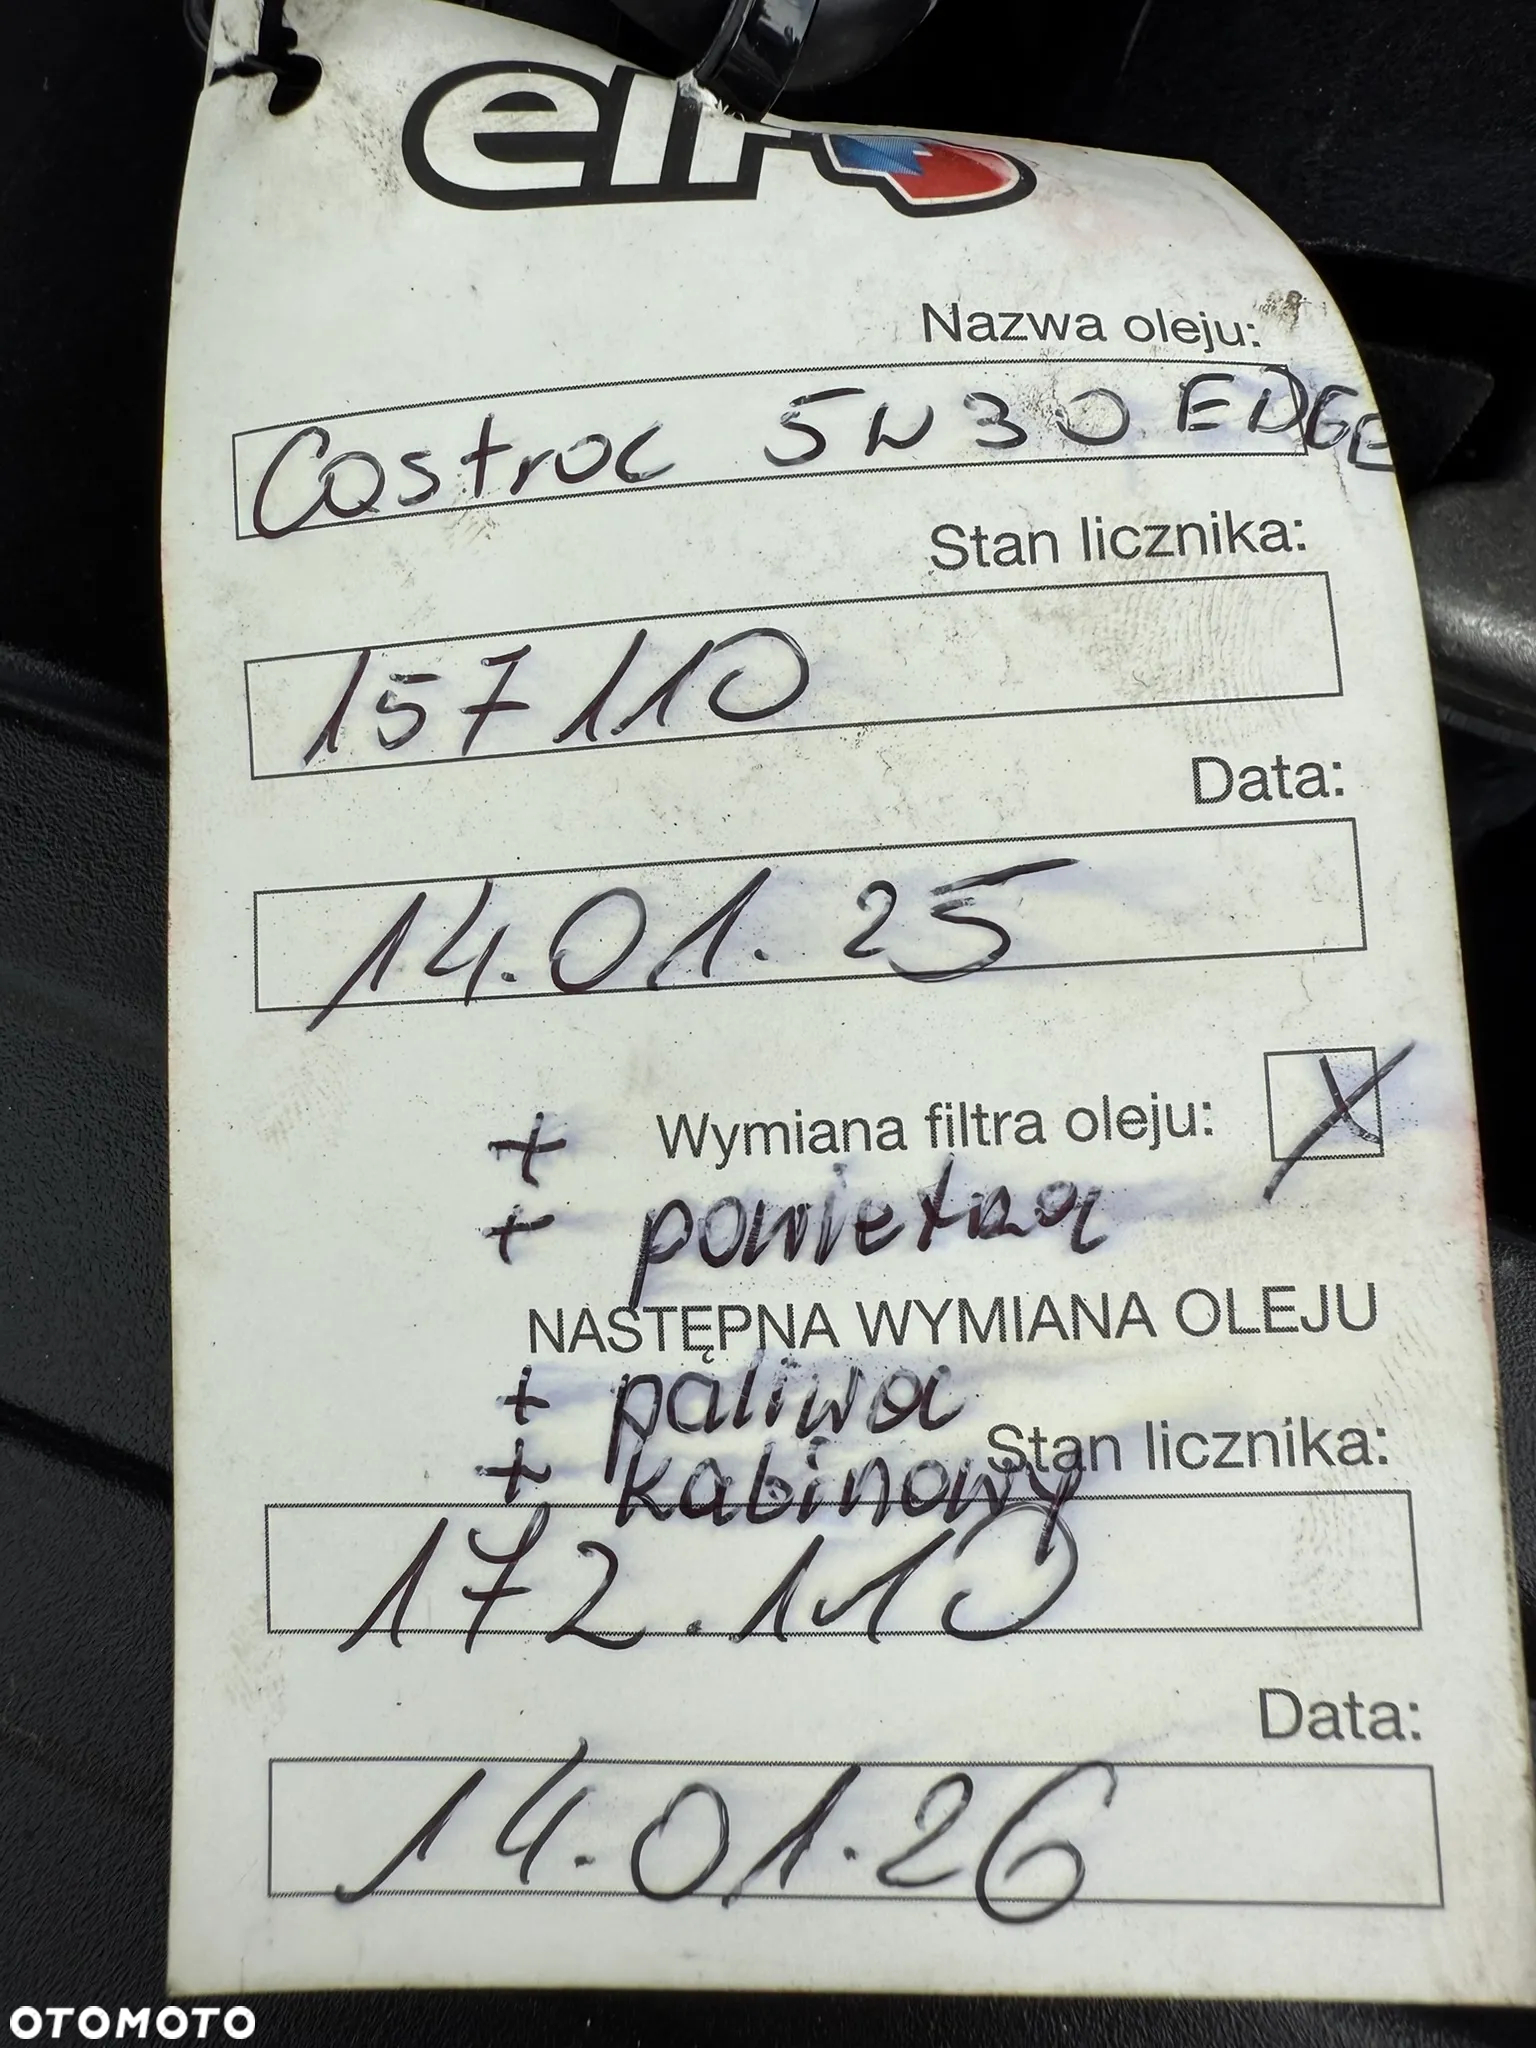 elf
Nazwa oleju:
Castrol 5W30 EDGE
Stan licznika:
157110
Data:
14.01.25
+ Wymiana filtra oleju: X
+ powietrza
NASTĘPNA WYMIANA OLEJU
+ paliwa
+ kabinowy
Stan licznika:
172.110
Data:
14.01.26
OTOMOTO